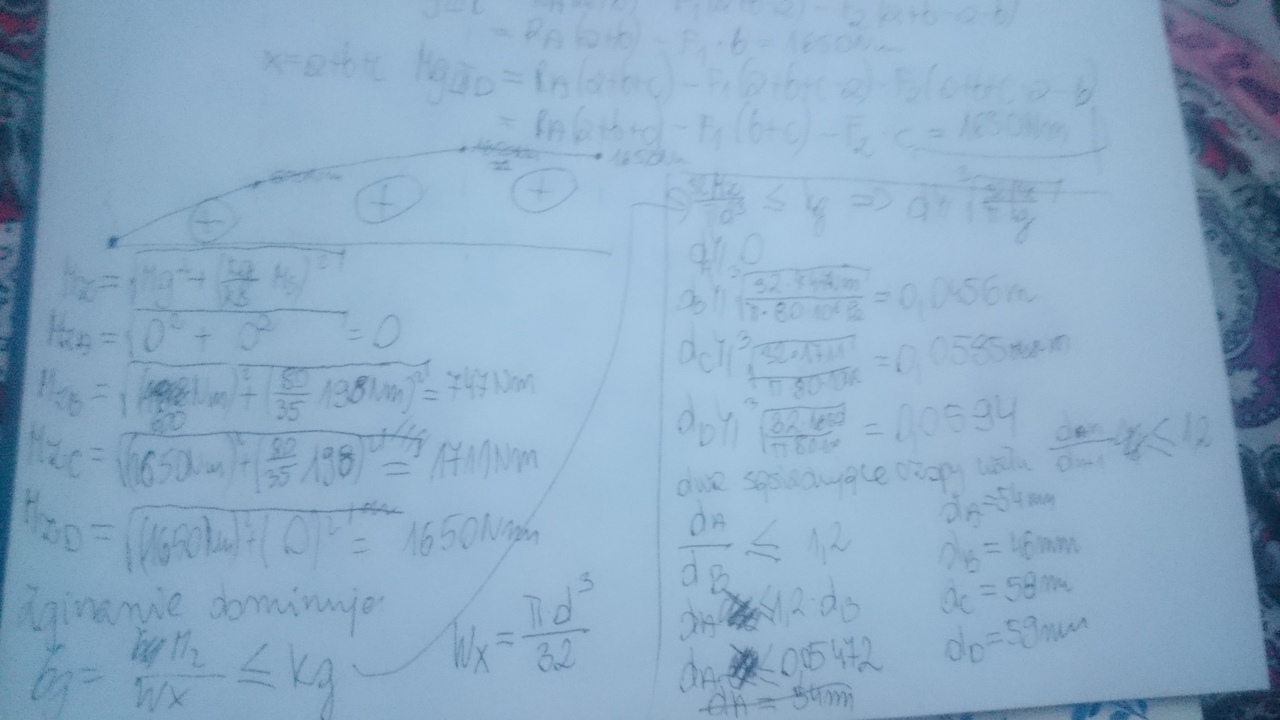 = R_A(a+b) - F_1 · b = 1650Nm
x=a+b+c Mg_D = R_A(a+b+c) - F_1(a+b+c-a) - F_2(a+b+c-a-b)
= R_A(a+b+c) - F_1(b+c) - F_2 · c = 1650Nm
1650Nm
+ + +
M_z = √(Mg² + (kg/ks M_s)²)
M_zA = √(0² + 0²) = 0
M_zB = √((600Nm)² + (80/35 198Nm)²) = 747Nm
M_zC = √((1650Nm)² + (80/35 198)²) = 1711Nm
M_zD = √((1650Nm)² + (0)²) = 1650Nm
Zginanie dominuje:
σg = M_z/Wx ≤ kg
Wx = π·d³/32
32Mz/πd³ ≤ kg ⇒ d ≥ ³√(32Mz/π kg)
d ≥ 0
d_B ≥ ³√(32·747Nm/π·80·10⁶Pa) = 0,0456m
d_C ≥ ³√(32·1711/π·80·10⁶) = 0,0585m
d_D ≥ ³√(32·1650/π·80·10⁶) = 0,0594
dwa sąsiadujące czopy wału ≤ 1,2
d_A/d_B ≤ 1,2
d_A ≤ 1,2·d_B
d_A ≤ 0,05472
d_A = 54m
d_A=54mm
d_B=46mm
d_C=58m
d_D=59mm